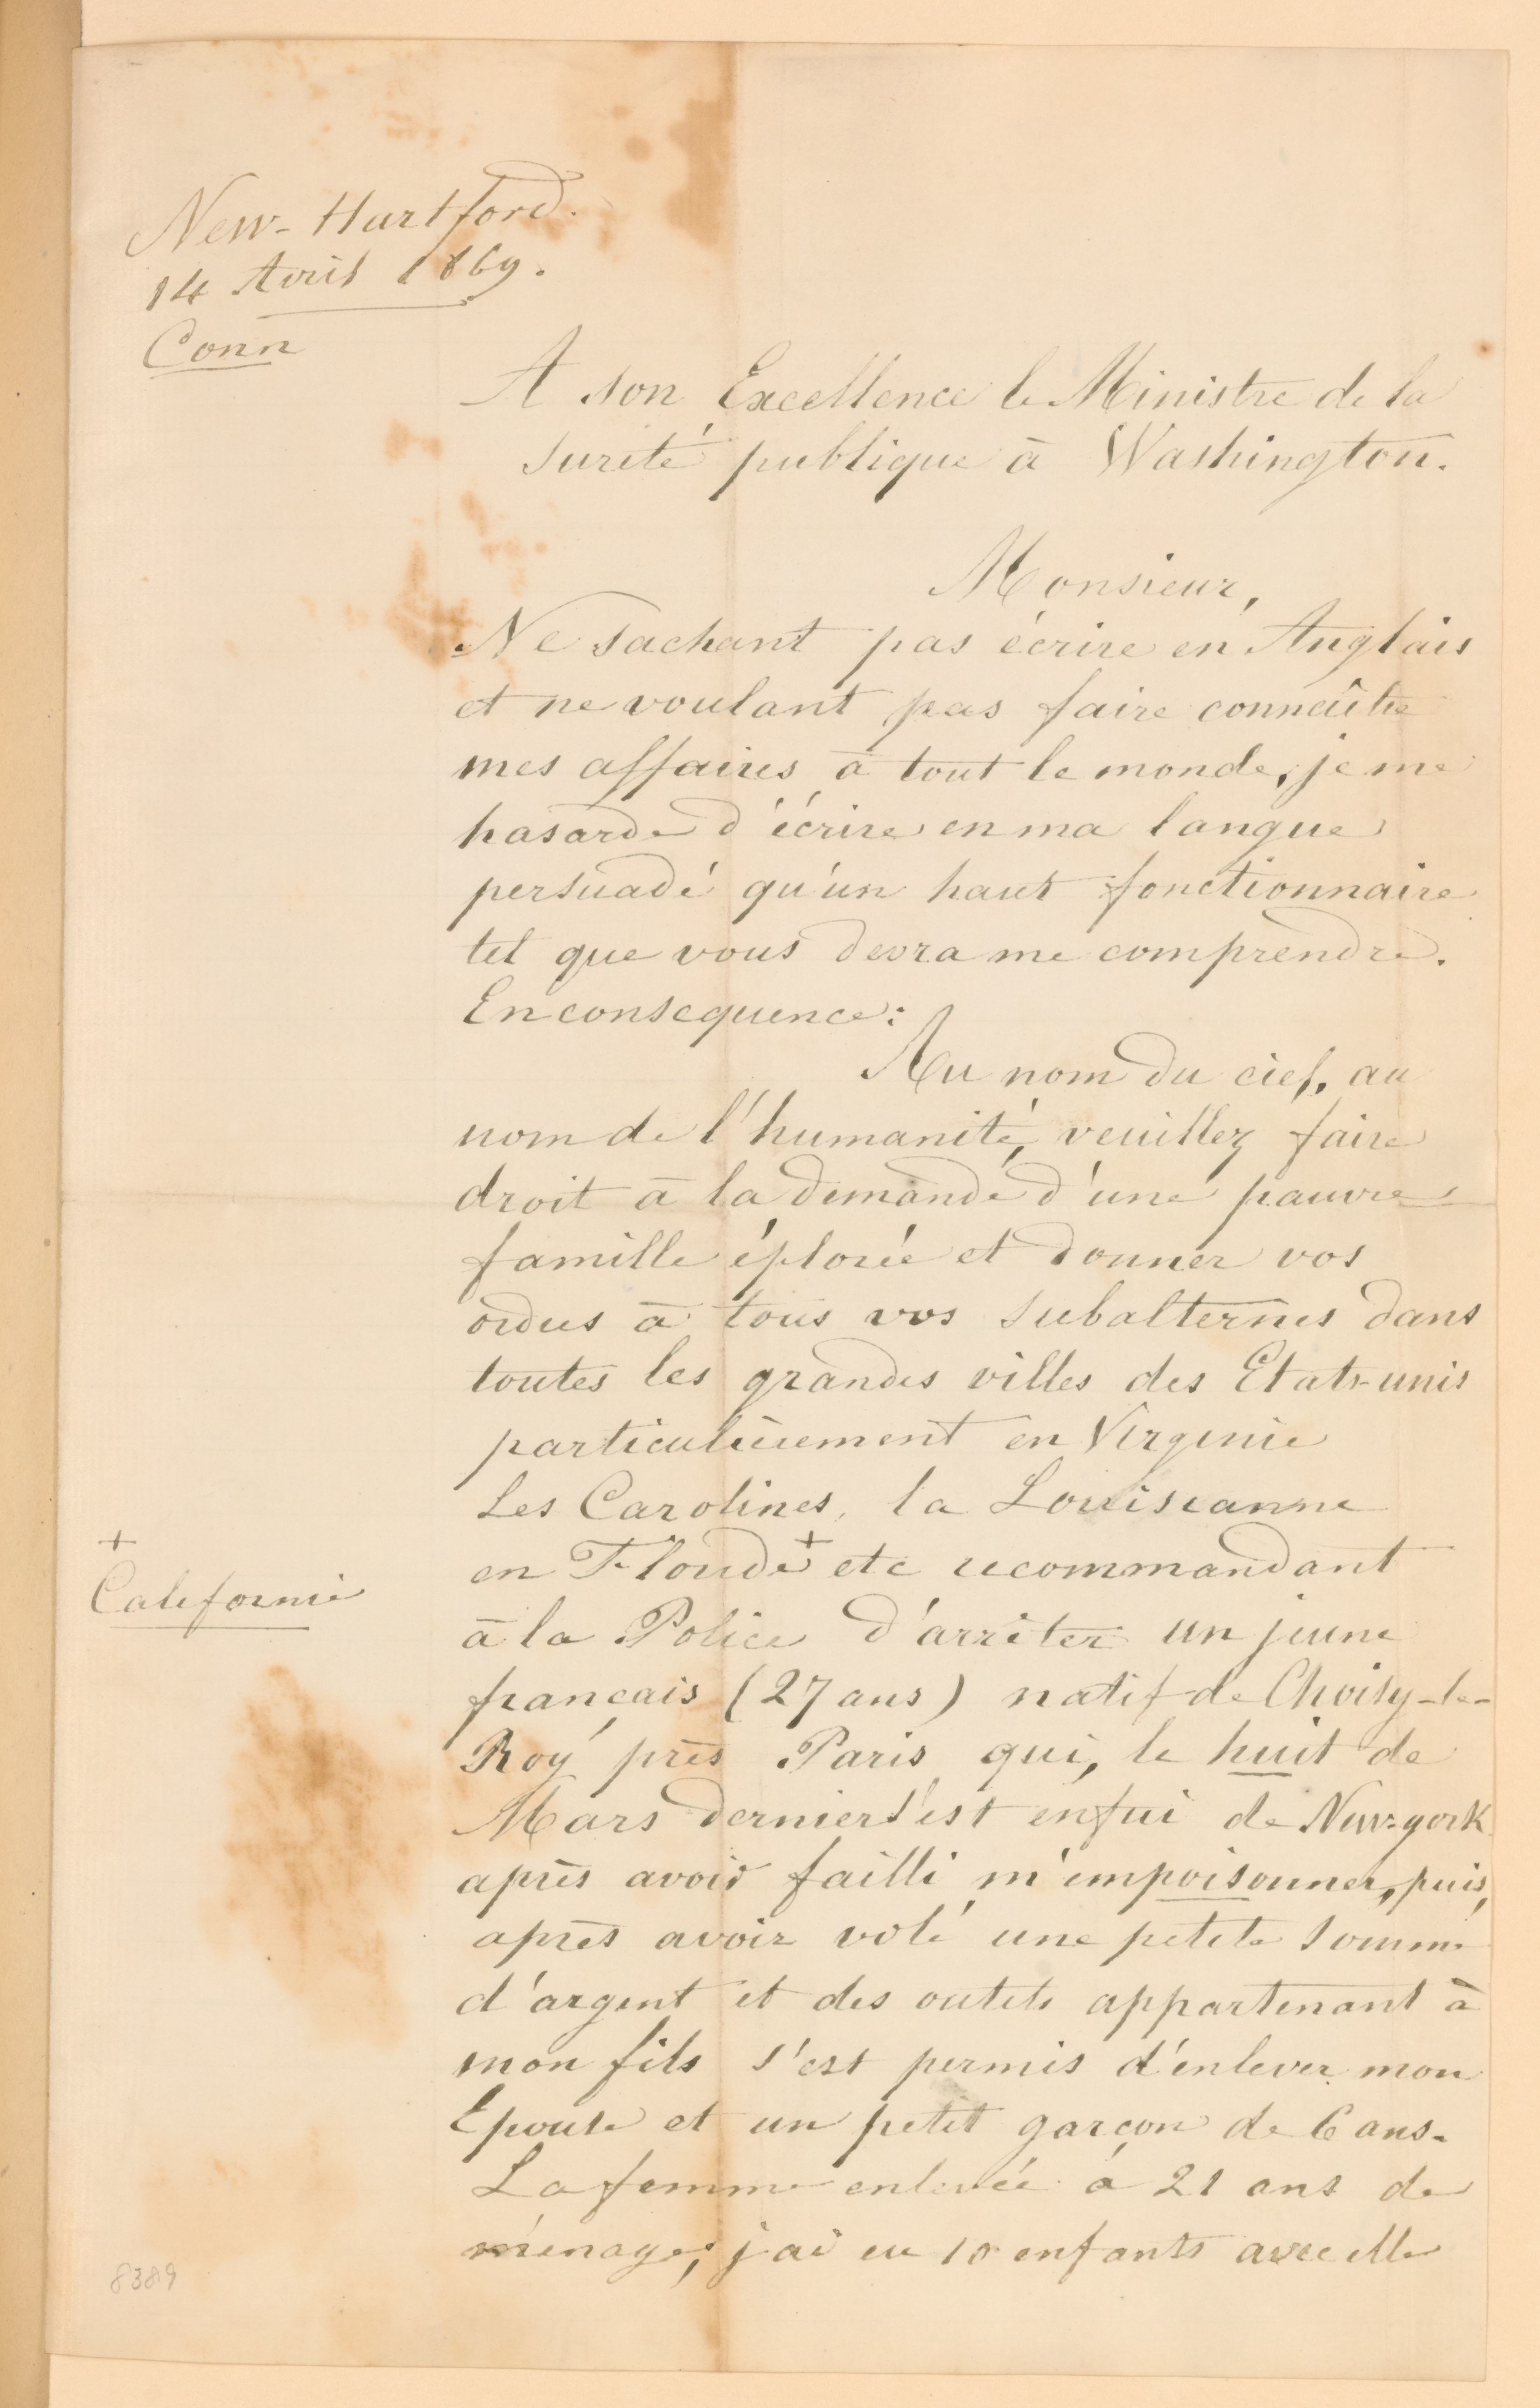 New-Hartford.
14 Avril 1869.
Conn
A son Excellence le Ministre de la
sureté publique à Washington.
Monsieur,
Ne sachant pas écrire en Anglais
et ne voulant pas faire connaître
mes affaires à tout le monde, je me
hasarde d'écrire en ma langue
persuadé qu'un haut fonctionnaire
tel que vous devra me comprendre.
En consequence:
Au nom du ciel, au
nom de l'humanité, veuillez faire
droit à la demande d'une pauvre
famille éplorée et donner vos
ordres à tous vos subalternes dans
toutes les grandes villes des Etats-unis
particulièrement en Virginie
Les Carolines, la Louisianne
en Floride + etc recommandant
+
Californie
à la Police d'arrêter un jeune
français (27 ans) natif de Choisy-le-
Roy près Paris qui, le huit de
Mars dernier s'est enfui de New-york
après avoir failli m'empoisonner, puis,
après avoir volé une petite somme
d'argent et des outils appartenant à
mon fils s'est permis d'enlever mon
Epouse et un petit garçon de 6 ans.
La femme enlevée à 21 ans de
ménage; j'ai eu 10 enfants avec elle
8389